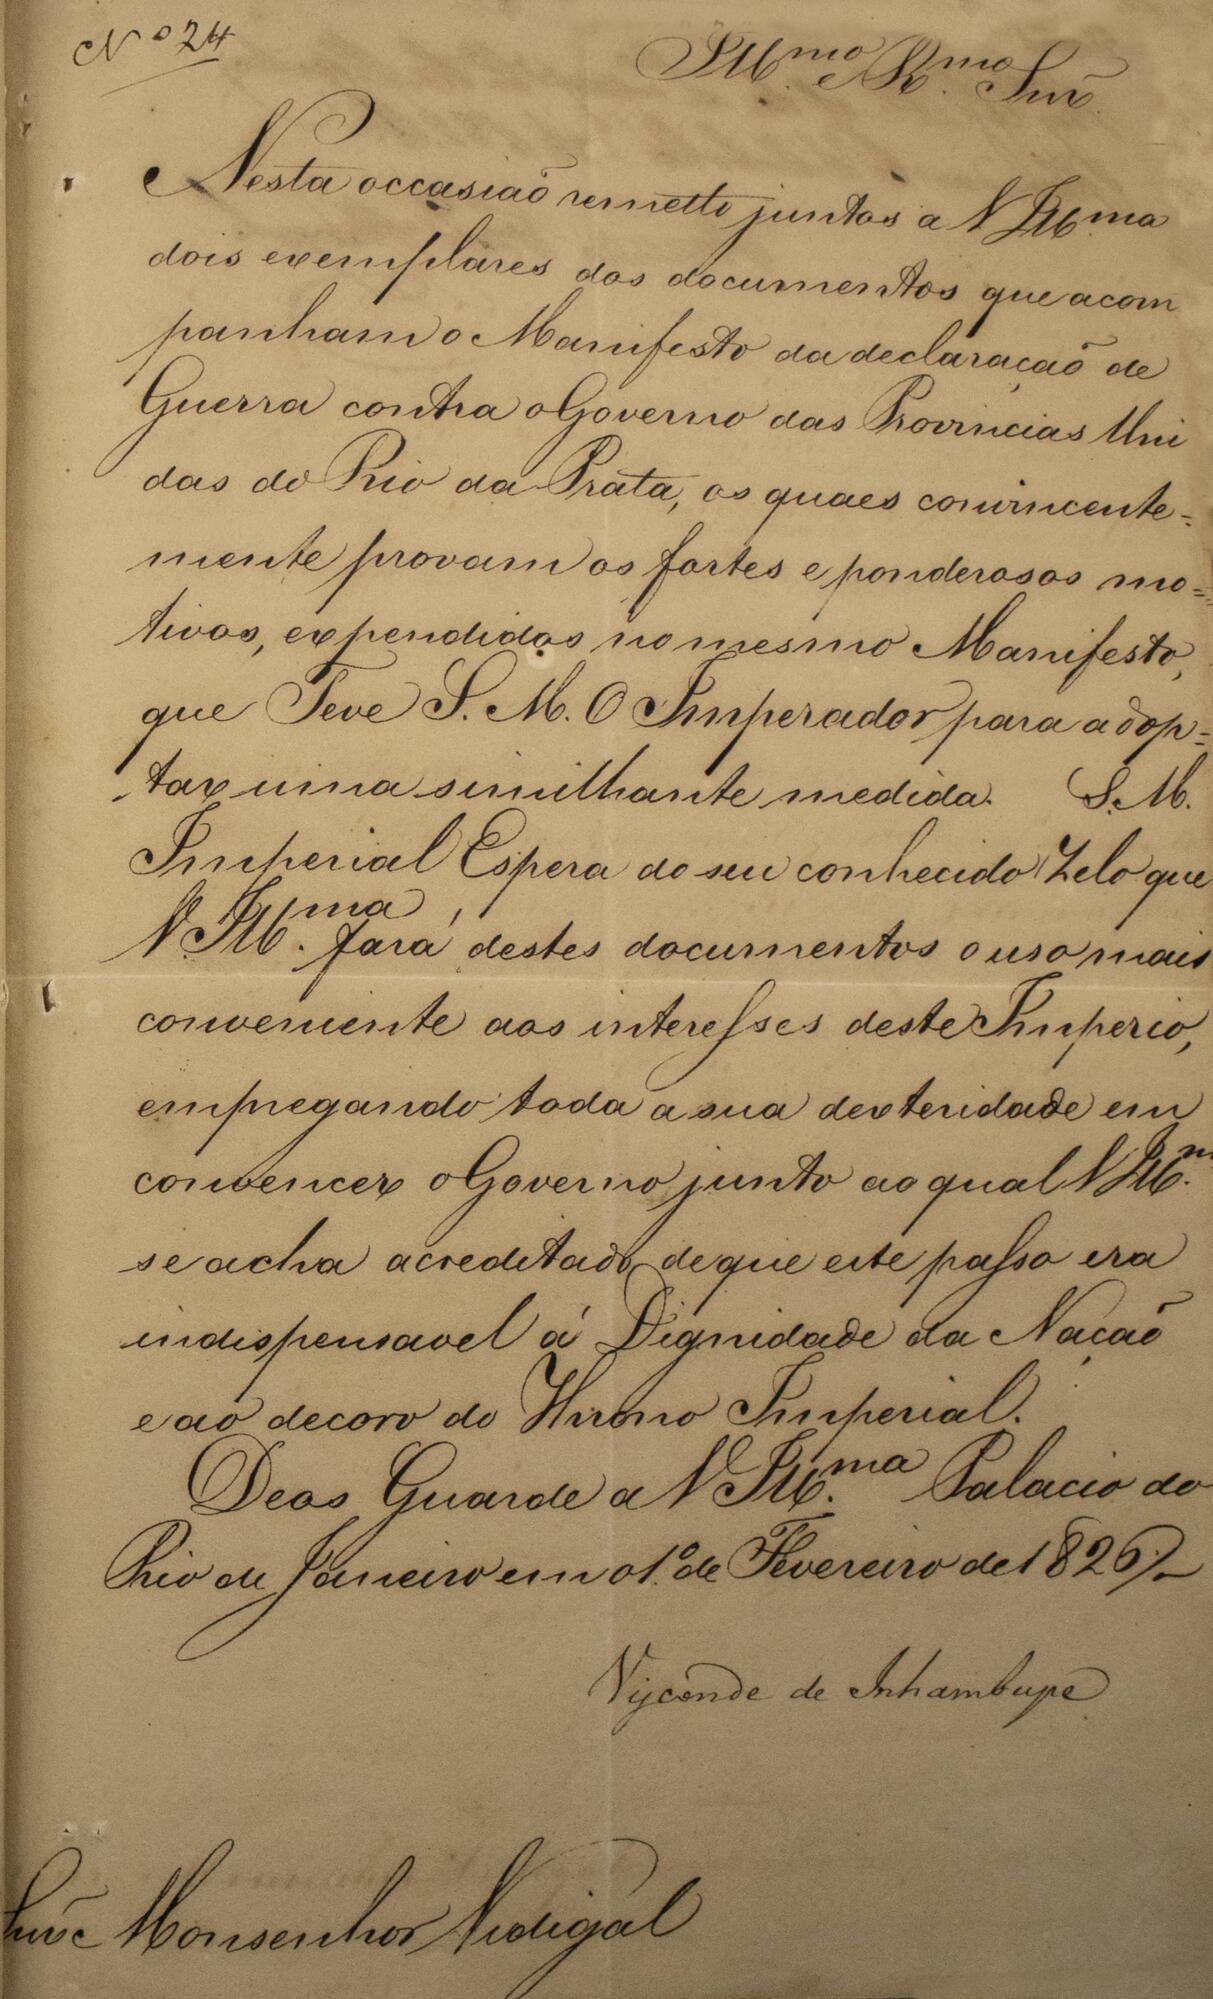 Nº 24
Illmo. e Rmo. Snr.
Nesta occasiaõ remetto juntos a V Illma
dois exemplares dos documentos que acom
panham o Manifesto da declaraçaõ de
Guerra contra o Governo das Provincias Uni
das do Rio da Prata, os quaes convincente=
mente provam os fortes e ponderosos mo=
tivos, expendidos no mesmo Manifesto,
que Teve S. M. O Imperador para adop=
tar uma similhante medida. S. M.
Imperial Espera do seu conhecido Zelo que
V. Illma. fará destes documentos o uso mais
conveniente aos interesses deste Imperio,
empregando toda a sua dexteridade em
convencer o Governo junto ao qual V Illm.
se acha acreditado, de que este passo era
indispensavel á Dignidade da Naçaõ
e ao decoro do Throno Imperial.
Deos Guarde a V Illma. Palacio do
Rio de Janeiro em 01º de Fevereiro de 1826
Visconde de Inhambupe
Snõr Monsenhor Vidigal